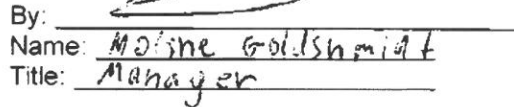 By:
Name: Moline Goldshmidt
Title: Manager